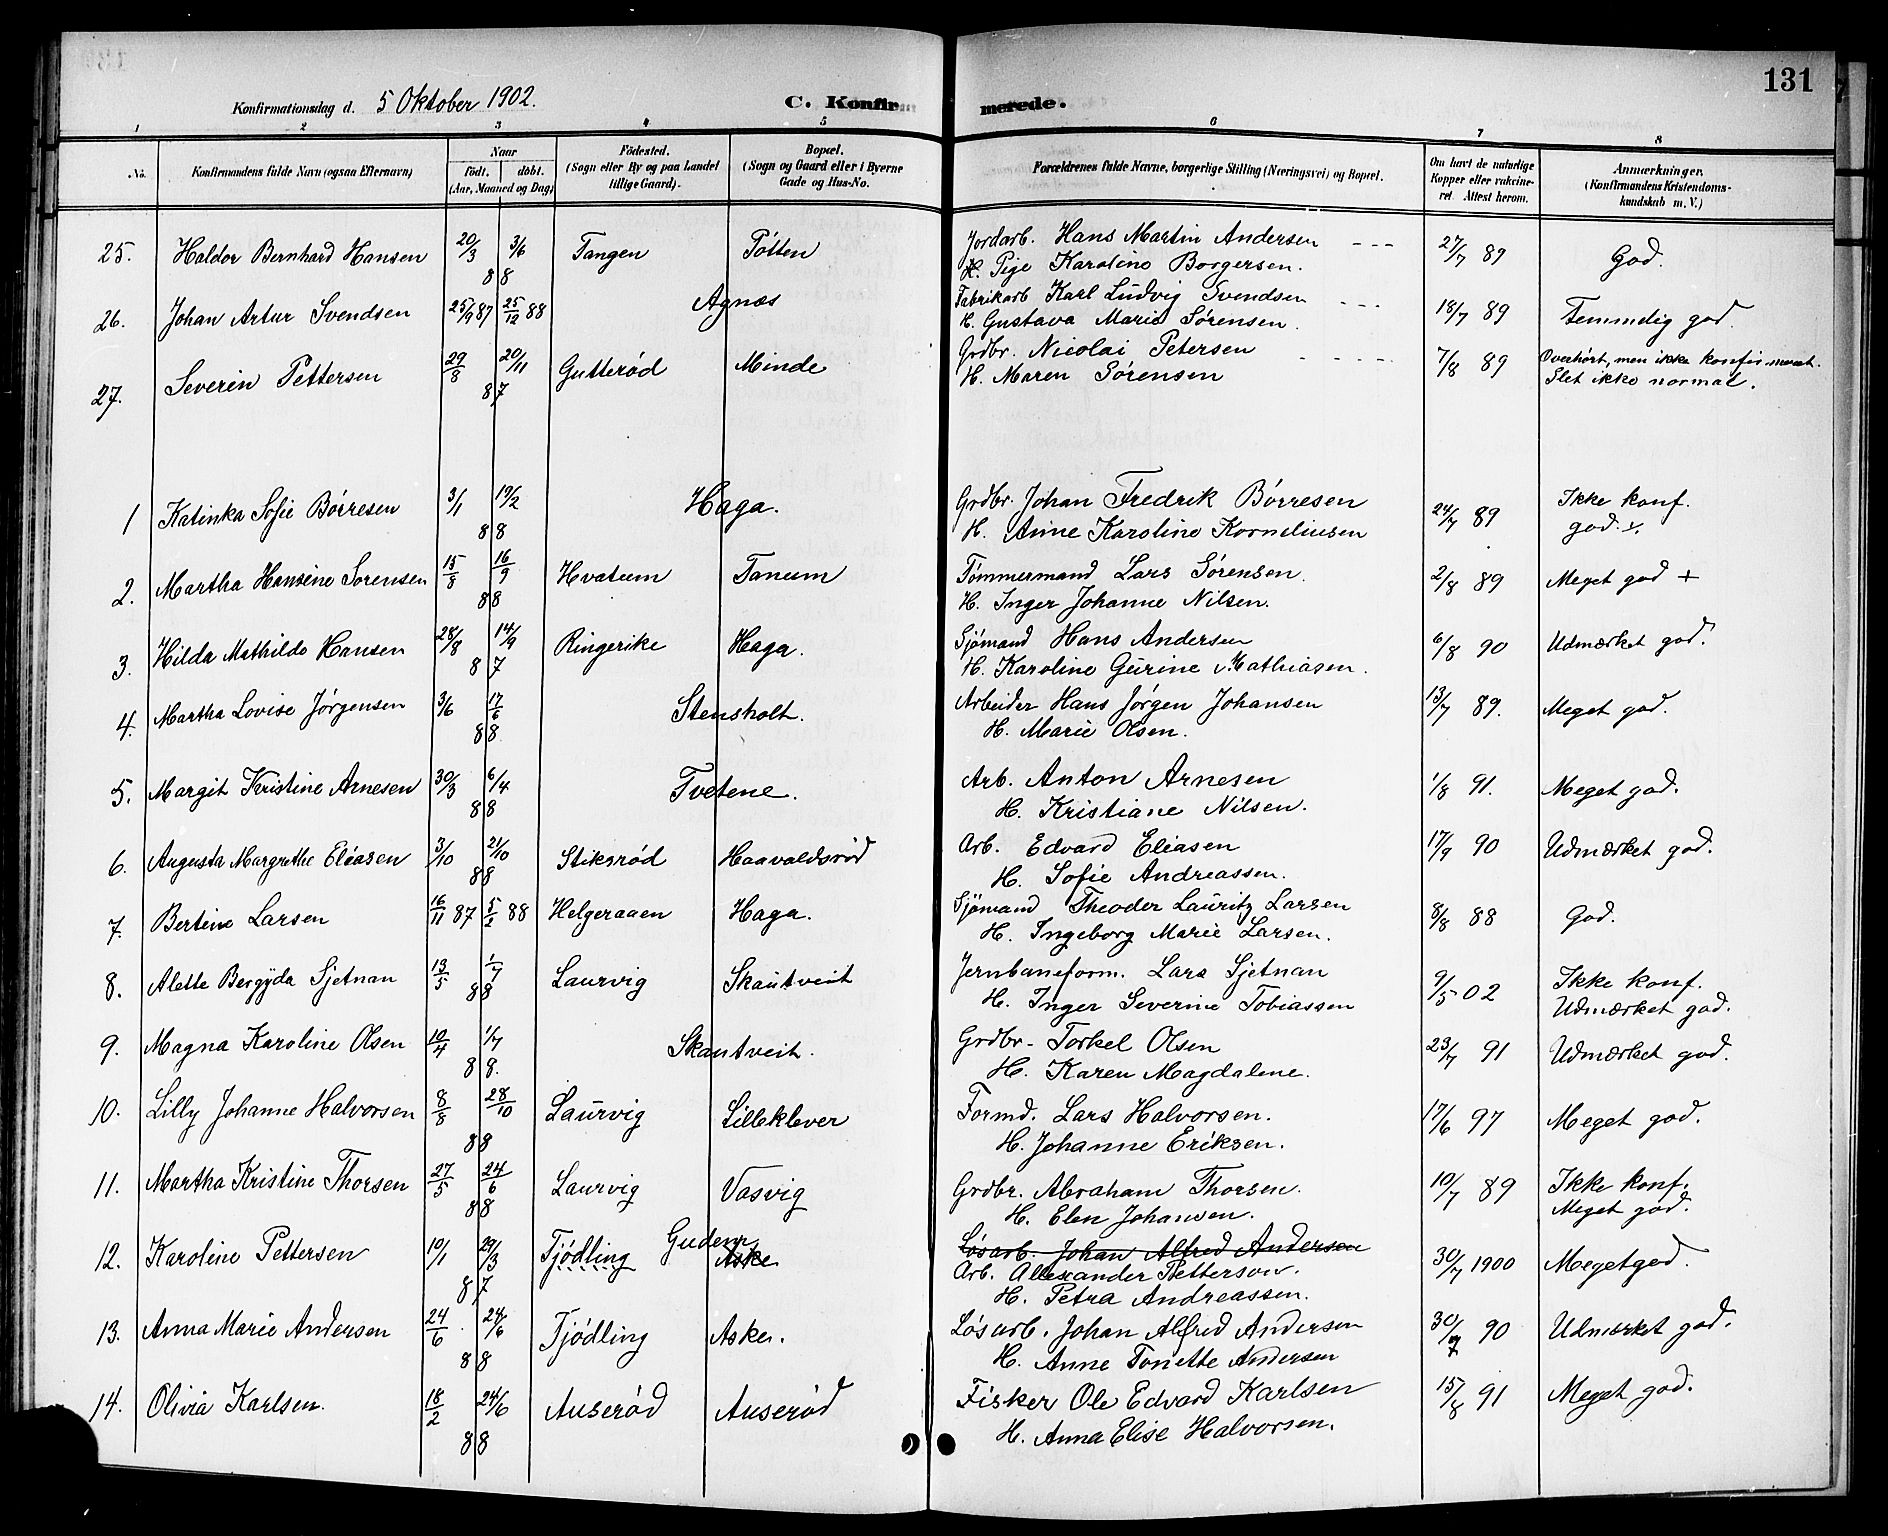 131
Konfirmationsdag d. 5 Oktober 1902. C. Konfirmerede.
1 2 3 4 5 6 7 8
No. Konfirmandens fulde Navn (ogsaa Efternavn) Naar födt. döbt. (Aar, Maaned og Dag) Födested. (Sogn eller By og paa Landet tillige Gaard). Bopæl. (Sogn og Gaard eller i Byerne Gade og Hus-No. Forældrenes fulde Navne, borgerlige Stilling (Næringsvei) og Bopæl. Om havt de naturlige Kopper eller vakcineret. Attest herom. Anmærkninger. (Konfirmandens Kristendomskundskab m. V.)
25. Haldor Bernhard Hansen 20/3 3/6 88 Tangen Tótten Jordarb. Hans Martin Andersen 27/7 89 God.
Pige Karoline Borgersen.
26. Johan Artur Svendsen 25/9 87 25/12 88 Agnæs Fabrikarb Karl Ludvig Svendsen 18/7 89 Temmelig god.
H. Gustava Marie Sørensen.
27. Severin Pettersen 29/8 20/11 87 Gutterød Minde Grdbr. Nicolai Petersen 7/8 89 Overhørt, men ikke konfirmeret.
H. Maren Sørensen Slet ikke normal.
1 Katinka Sofie Børresen 3/1 19/2 88 Haga. Grdbr. Johan Fredrik Børresen 24/7 89 Ikke konf.
H. Anne Karoline Korneliusen god.
2. Martha Hansine Sorensen 15/8 16/9 88 Hvatum Tanum Tømmermand Lars Sørensen. 2/8 89 Meget god +
H. Inger Johanne Nilsen.
3. Hilda Mathilde Hansen 28/8 14/9 87 Ringerike Haga. Sjømand Hans Andersen 6/8 90 Udmærket god.
H. Karoline Gurine Mathiasen.
4. Martha Lovise Jørgensen 3/6 17/6 88. Stensholt. Arbeider Hans Jørgen Johansen 13/7 89. Meget god.
H. Marie Olsen.
5. Margit Kristine Arnesen 30/3 6/4 88 Tvetene. Arb. Anton Arnesen 1/8 91. Meget god.
H. Kristiane Nilsen.
6. Augusta Margrethe Eliasen 3/10 21/10 88 Stiksrød Haavaldsrød Arb. Edvard Eliasen 17/9 90 Udmærket god.
H. Sofie Andreassen.
7. Bertine Larsen 16/11 87 5/2 88 Helgeraaen Haga. Sjømand Theoder Lauritz Larsen 8/8 88 God.
H. Ingeborg Marie Larsen.
8. Alette Bergyda Sjetnan 13/5 1/7 88 Laurvig Skautveit Jernbaneform. Lars Sjetnan 9/5 02 Ikke konf.
H. Inger Severine Tobiassen Udmærket god.
9. Magna Karoline Olsen 10/4 1/7 88. Skautveit. Grdbr. Torkel Olsen 23/7 91 Udmærket god.
H. Karen Magdalene.
10. Lilly Johanne Halvorsen 8/8 28/10 88 Laurvig Lilleklever Formd. Lars Halvorsen. 17/6 97 Meget god.
H. Johanne Eriksen.
11. Martha Kristine Thorsen 27/5 24/6 88 Laurvig Vasvig Grdbr. Abraham Thorsen. 10/7 89 Ikke konf.
H. Elen Johansen. Meget god.
12. Karoline Pettersen 10/1 29/3 87 Tjødling Gudem Aske Løsarb. Johan Alfred Andersen 30/7 1900 Meget god.
Arb. Allexander Petterson.
H. Petra Andreassen.
13. Anna Marie Andersen 24/6 24/6 88 Tjødling Aske. Løsarb. Johan Alfred Andersen 30/7 90 Udmærket god.
H. Anne Tonette Andersen
14. Olivia Karlsen. 18/2 24/6 88 Auserød Auserød Fisker Ole Edvard Karlsen 15/8 91 Meget god.
H. Anna Elise Halvorsen.